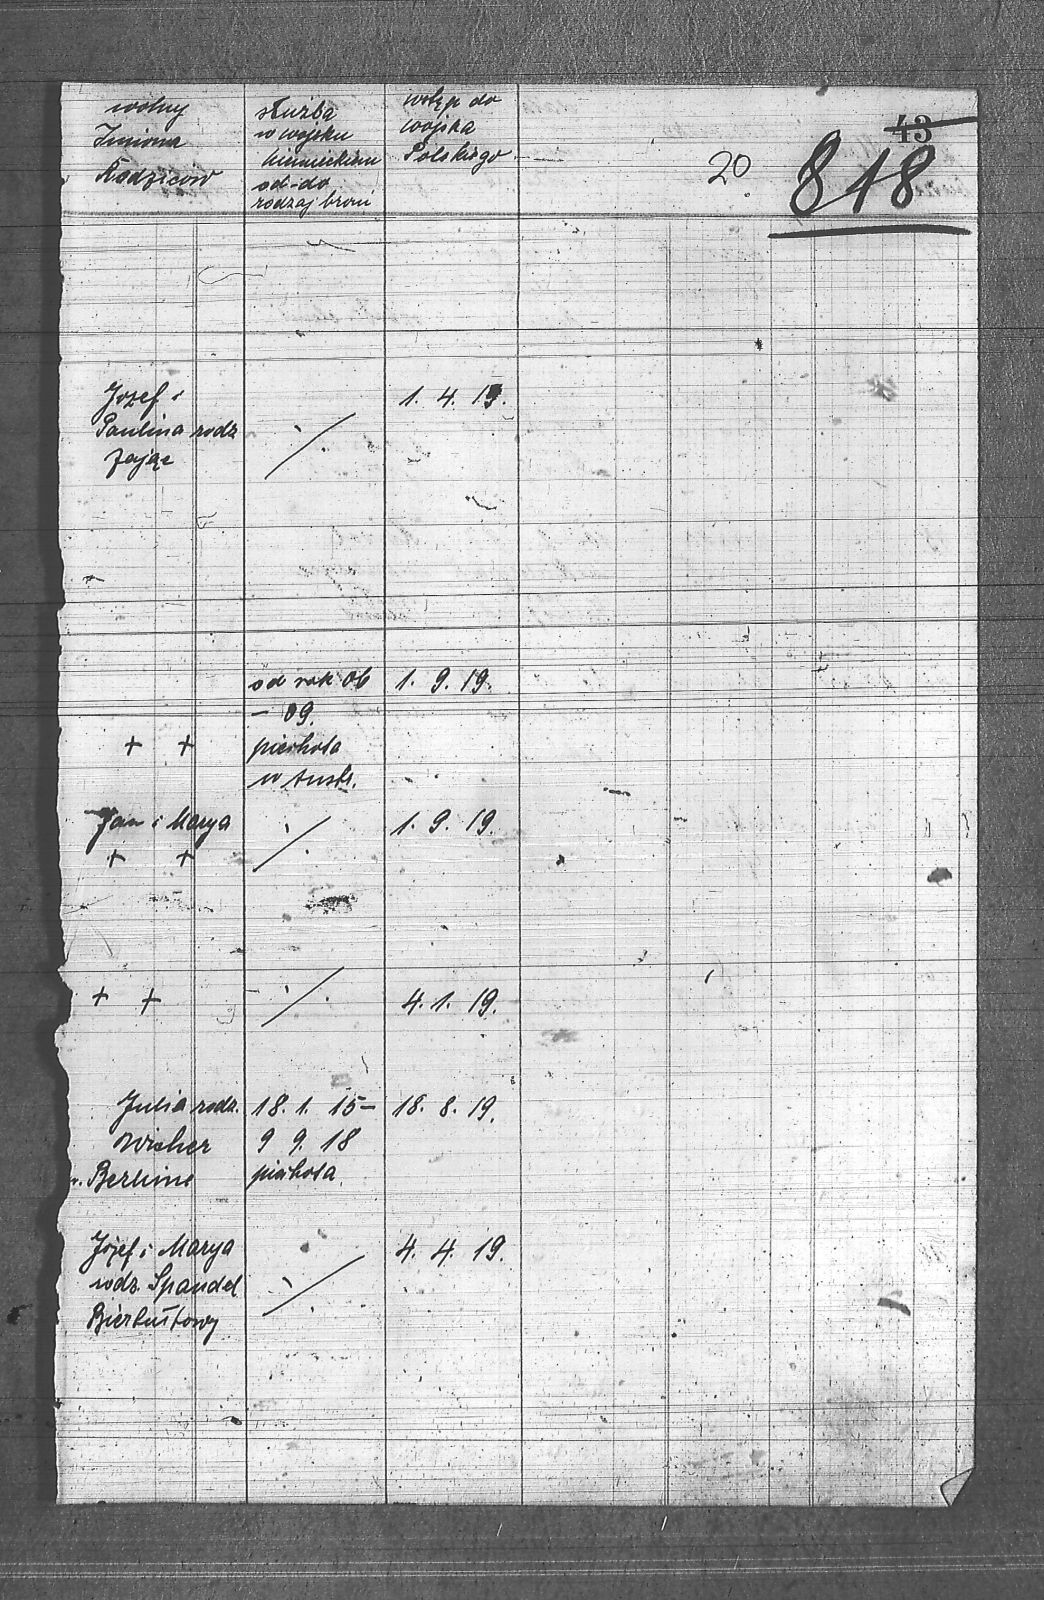 wolny
Imiona
Rodziców
służba
w wojsku
niemieckiem
od-do
rodzaj broni
wstęp do
wojska
Polskiego
20
43
848
Jozef i
Paulina rodz
Zając
./.
1. 4. 19.
od rok 06
- 09.
piechota
w Austr.
1. 9. 19.
+ +
Jan i Marya
+ +
./.
1. 9. 19.
+ +
./.
4. 1. 19.
Julia rodz.
Wicher
w. Berlinie
18. 1. 15-
9 9. 18
piechota.
18. 8. 19.
Józef i Marya
rodz. Spandel
Bierułtowy
./.
4. 4. 19.